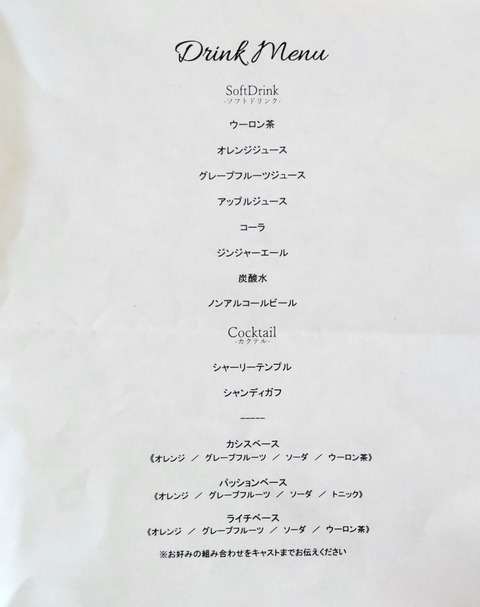 Drink Menu
SoftDrink
-ソフトドリンク-
ウーロン茶
オレンジジュース
グレープフルーツジュース
アップルジュース
コーラ
ジンジャーエール
炭酸水
ノンアルコールビール
Cocktail
-カクテル-
シャーリーテンプル
シャンディガフ
-----
カシスベース
《オレンジ ／ グレープフルーツ ／ ソーダ ／ ウーロン茶》
パッションベース
《オレンジ ／ グレープフルーツ ／ ソーダ ／ トニック》
ライチベース
《オレンジ ／ グレープフルーツ ／ ソーダ ／ ウーロン茶》
※お好みの組み合わせをキャストまでお伝えください